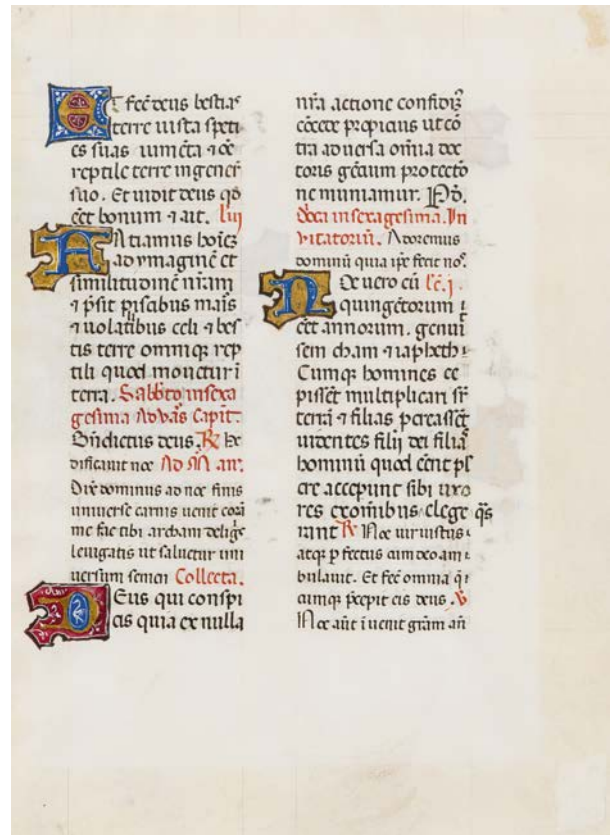 Et fec̄ deus bestias
terre iuxta speti
es suas iumēta ⁊ oē
reptile terre in gener̄
suo. Et uidit deus qđ
eēt bonum ⁊ ait. lui
Atiamus hoīez
ad ymaginē et
similitudinē nr̄am
⁊ p̄sit pisabus mar̄is
⁊ uolatibus celi ⁊ bes
tis terre omniqꝫ rep
tili quod monetur ī
terra. Sabb̄to in sexa
gesima Ad vās̄ Capit̄.
Bn̄dictus deus. ℟ He
dificauit noe Ad M̄ an̄.
Dix̄ dominus ad noe finis
uniuerse carnis uenit corā
me fac tibi archam deliḡ
leuigatis ut saluetur uni
uersum semen Collecta.
Deus qui conspi
cis quia ex nulla
nr̄a actione confidīꝫ
cōcede propicius ut cō
tra aduersa om̄ia doc
toris gētium protectō
ne muniamur. P̄ D.
D̄oca in sexagesima. In
vitatoriū. Adoremus
dominū quia ip̄e fecit nos.
Noe uero cū lc̄. i.
quingētorum
eēt annorum. genuī
sem cham ⁊ iapheth
Cumqꝫ homines ce
pissēt multiplicari sr̄
terrā ⁊ filias p̄creassēt
uidentes filij dei filias
hominū quod eēnt pl
cre acceperunt sibi uxo
res ex omībus elege q̄s
rant ℟ Noe uir iustus
atqꝫ p̄fectus cum deo am
bulauit. Et fec̄ omnia q̄
cumqꝫ p̄cepit eis deus. ℣
Noe aūt īuenit grām an̄